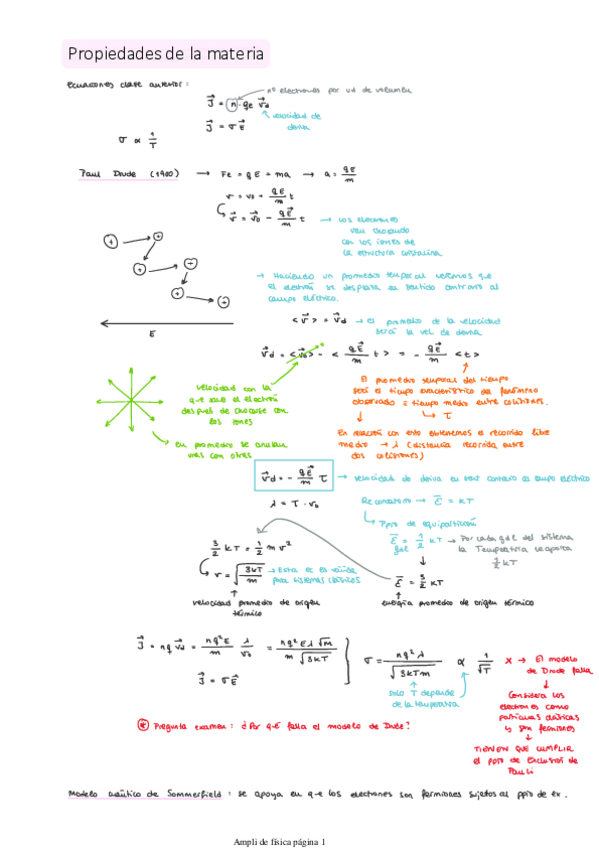 Propiedades de la materia
Ecuaciones clase anterior:
nº electrones por ud de volumen
J⃗ = n·qe v⃗d
velocidad de deriva
J⃗ = σ E⃗
σ ∝ 1/T
Paul Drude (1900) → Fe = qE = ma → a = qE/m
v = v₀ + qE/m t
v⃗ = v⃗₀ - qE⃗/m t → Los electrones
van chocando
con los iones de
la estructura cristalina
→ Haciendo un promedio temporal veremos que
el electrón se desplaza en sentido contrario al
campo eléctrico.
E
<v⃗> = v⃗d → es promedio de la velocidad
será la vel de deriva
v⃗d = <v⃗₀> - <qE⃗/m t> = - qE⃗/m <t>
velocidad con la
que sale el electrón
después de chocarse con
los iones
En promedio se anulan
unas con otras
El promedio temporal del tiempo
será el tiempo característico del fenómeno
observado = tiempo medio entre colisiones.
↳ τ
En relación con esto obtenemos el recorrido libre
medio → λ (distancia recorrida entre
dos colisiones)
v⃗d = - qE⃗/m τ → velocidad de deriva en sent contrario al campo eléctrico
λ = τ · v₀
Recordatorio → E̅ = kT
↳ Ppio de equipartición
E̅/gdl = 1/2 kT → Por cada gdl del sistema
la Temperatura se aporta
1/2 kT
3/2 kT = 1/2 m v²
v = √(3kT/m) → Esta ec es válida
para sistemas clásicos
E̅ = 3/2 kT
velocidad promedio de origen
térmico
energía promedio de origen térmico
J⃗ = nq v⃗d = nq²E/m λ/v₀ = nq²Eλ√m / m√3kT
J⃗ = σE⃗
σ = nq²λ/√3kTm ∝ 1/√T X → El modelo
de Drude falla
solo T depende
de la temperatura
Considera los
electrones como
partículas clásicas
y son fermiones
TIENEN QUE CUMPLIR
el ppio de Exclusión de
Pauli
⊛ Pregunta examen: ¿Por qué falla el modelo de Drude?
Modelo cuántico de Sommerfield: se apoya en que los electrones son fermiones sujetos al ppio de ex.
Ampli de física página 1